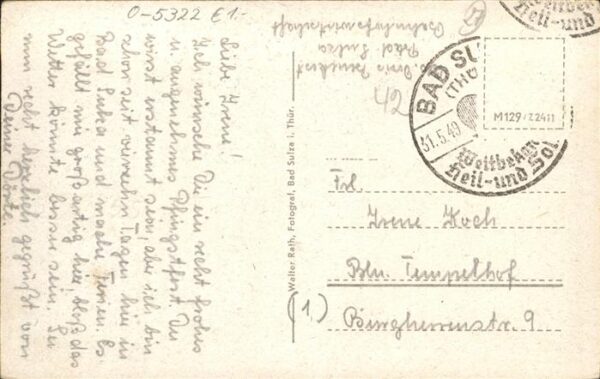 0-5322 €1.-
Liebe Irene!
Ich wünsche Dir ein recht frohes
u. angenehmes Pfingstfest. Du
wirst erstaunt sein, aber ich bin
schon seit vierzehn Tagen hier in
Bad Sulza und mache Ferien. Es
gefällt mir großartig hier bloß das
Wetter könnte besser sein. Sei
nun recht herzlich gegrüßt von
Deiner Dörte.
Walter Rath, Fotograf, Bad Sulza i. Thür.
Bad Sulza
Bahnhofswirtschaft
42
BAD SU
(THÜ
31.5.49
Weltbekan
Heil-und Sol
Weltbekan
Heil-und Sol
M129/Z2411
Frl.
Irene Koch
Bln. Tempelhof
(1.)
Burgherrenstr. 9